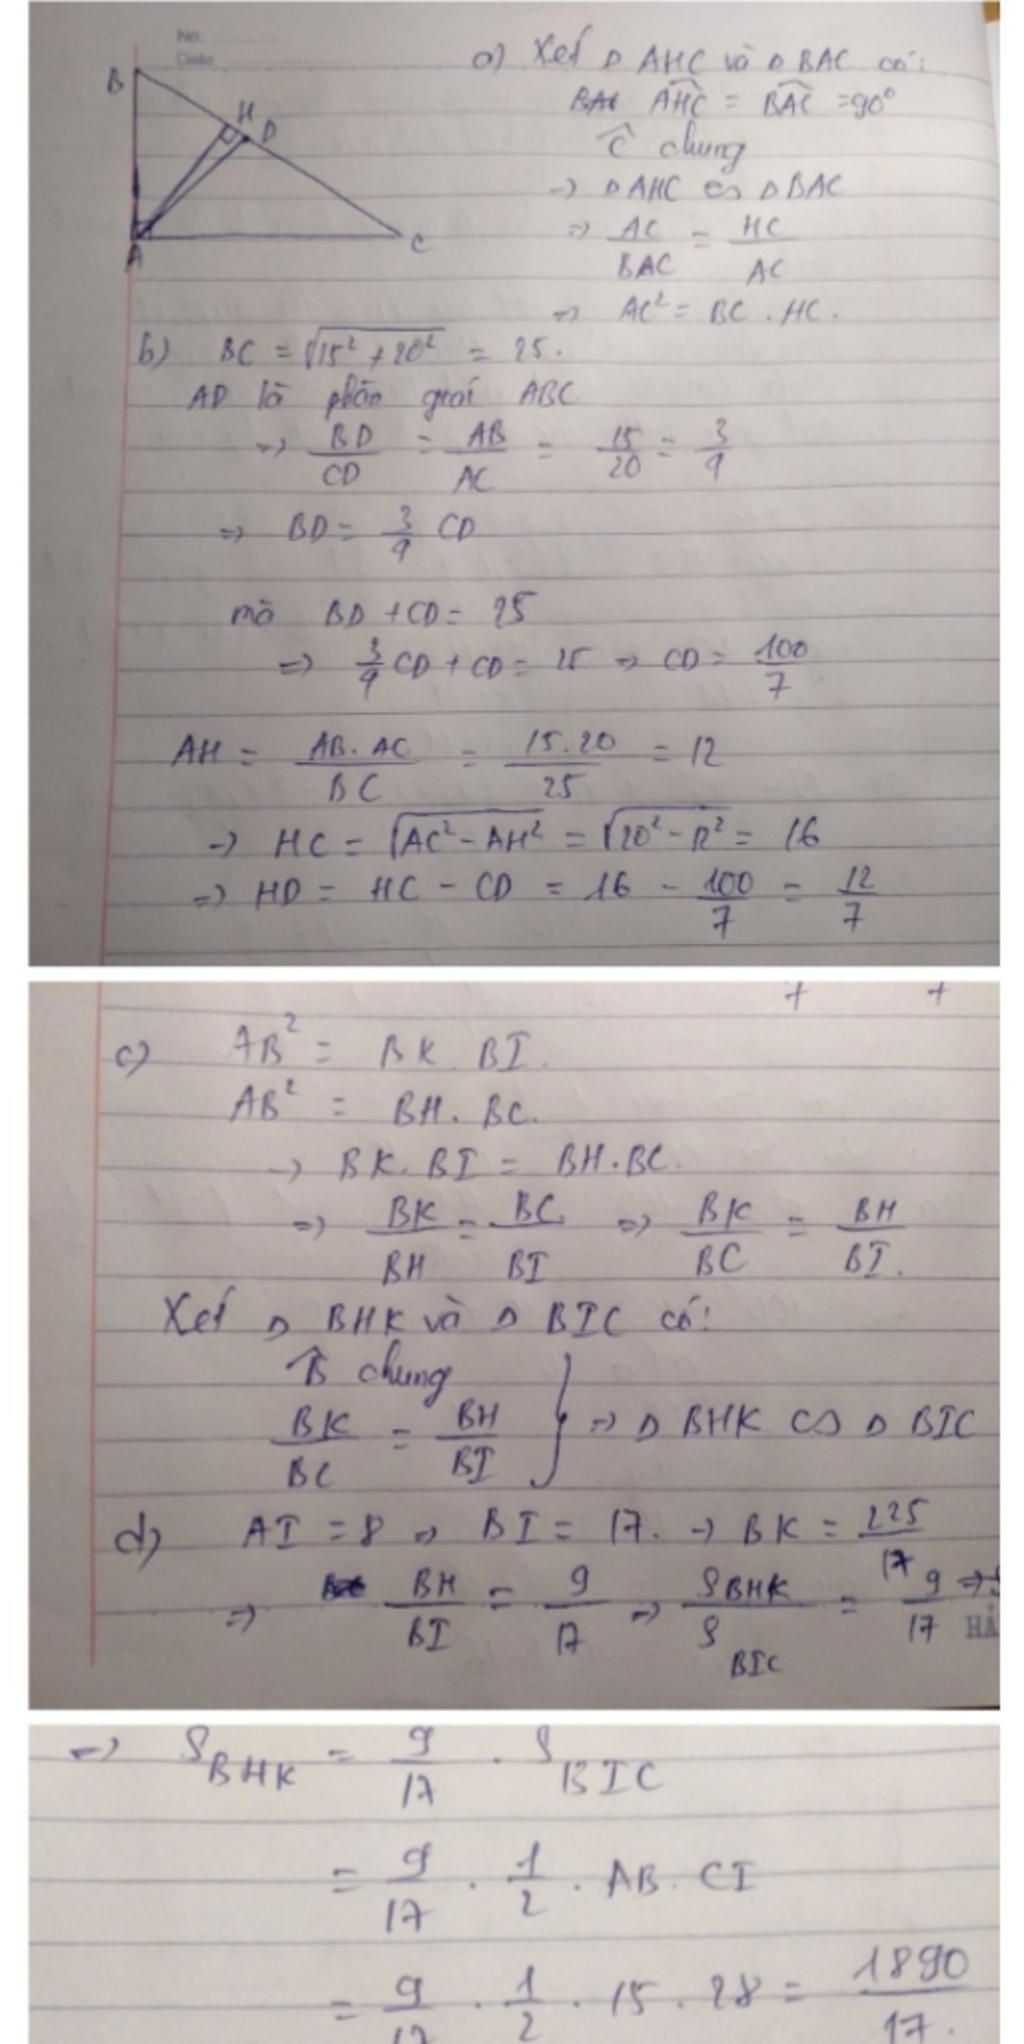 No.
Date
B
H
D
A
C
a) Xét Δ AHC và Δ BAC có:
AHC = BAC = 90°
Ĉ chung
→ Δ AHC ∽ Δ BAC
⇒ AC/BAC = HC/AC
⇒ AC² = BC . HC.
b) BC = √15² + 20² = 25.
AD là phân giác ABC
⇒ BD/CD = AB/AC = 15/20 = 3/4
⇒ BD = 3/4 CD
mà BD + CD = 25
⇒ 3/4 CD + CD = 25 ⇒ CD = 100/7
AH = AB. AC/BC = 15.20/25 = 12
→ HC = √AC² - AH² = √20² - 12² = 16
⇒ HD = HC - CD = 16 - 100/7 = 12/7
7 7
c) AB² = BK. BI.
AB² = BH. BC.
→ BK. BI = BH.BC.
⇒ BK/BH = BC/BI ⇒ BK/BC = BH/BI.
Xét Δ BHK và Δ BIC có:
B̂ chung
BK/BC = BH/BI } ⇒ Δ BHK ∽ Δ BIC
d) AI = 8 ⇒ BI = 17. → BK = 225/17
⇒ BH/BI = 9/17 ⇒ S BHK/S BIC = 9/17 ⇒
HẢ
⇒ S BHK = 9/17 . S BIC
= 9/17 . 1/2 . AB. CI
= 9/17 . 1/2 . 15 . 28 = 1890/17.